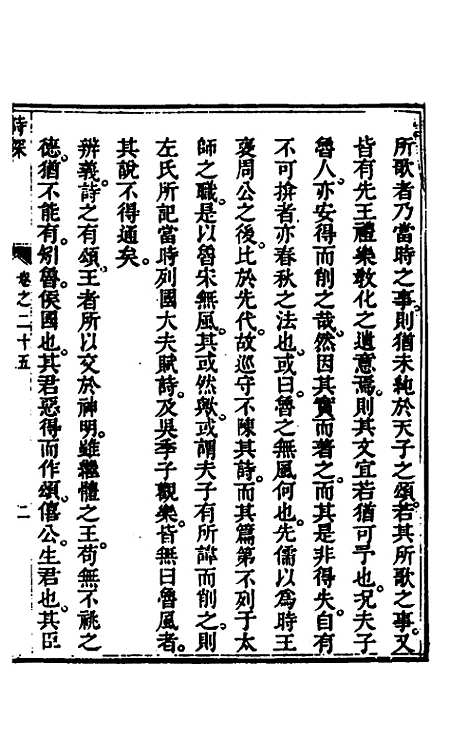 所歌者乃當時之事。則猶未純於天子之頌。若其所歌之事。又
皆有先王禮樂教化之遺意焉。則其文宜若猶可予也。況夫子
魯人。亦安得而削之哉。然因其實而著之。而其是非得失自有
不可揜者。亦春秋之法也。或曰。魯之無風何也。先儒以為時王
褒周公之後。比於先代。故巡守不陳其詩。而其篇第不列于太
師之職。是以魯宋無風。其或然歟。或謂夫子有所諱而削之。則
左氏所記當時列國大夫賦詩。及吳季子觀樂。皆無曰魯風者。
其說不得通矣。
辨義詩之有頌。王者所以交於神明。雖繼體之王。苟無不祧之
德。猶不能有。矧魯侯國也。其君惡得而作頌。僖公生君也。其臣
詩深
卷之二十五
二